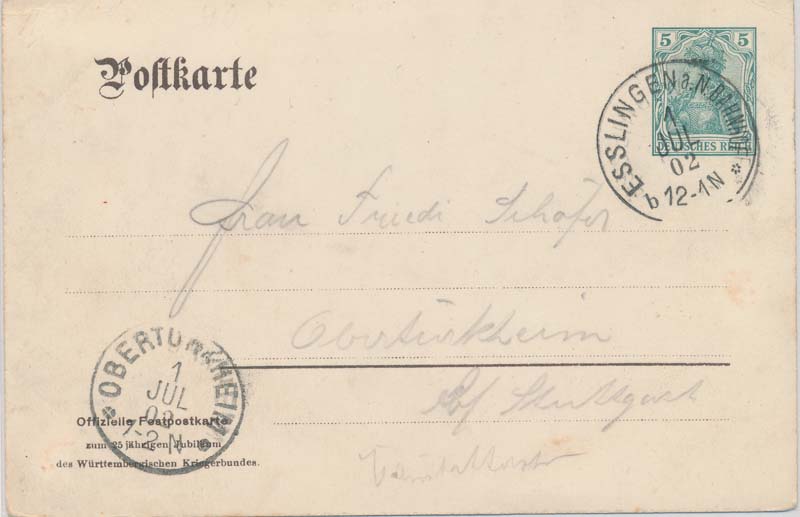 Postkarte
5 5
DEUTSCHES REICH
ESSLINGEN a. N. BAHNHOF
1
JUL
02
b 12-1N
Frau Friedi Schäfer
Obertürkheim
bei Stuttgart
OBERTÜRKHEIM
1
JUL
02
1-2 N
Offizielle Festpostkarte
zum 25 jährigen Jubiläum
des Württembergischen Kriegerbundes.